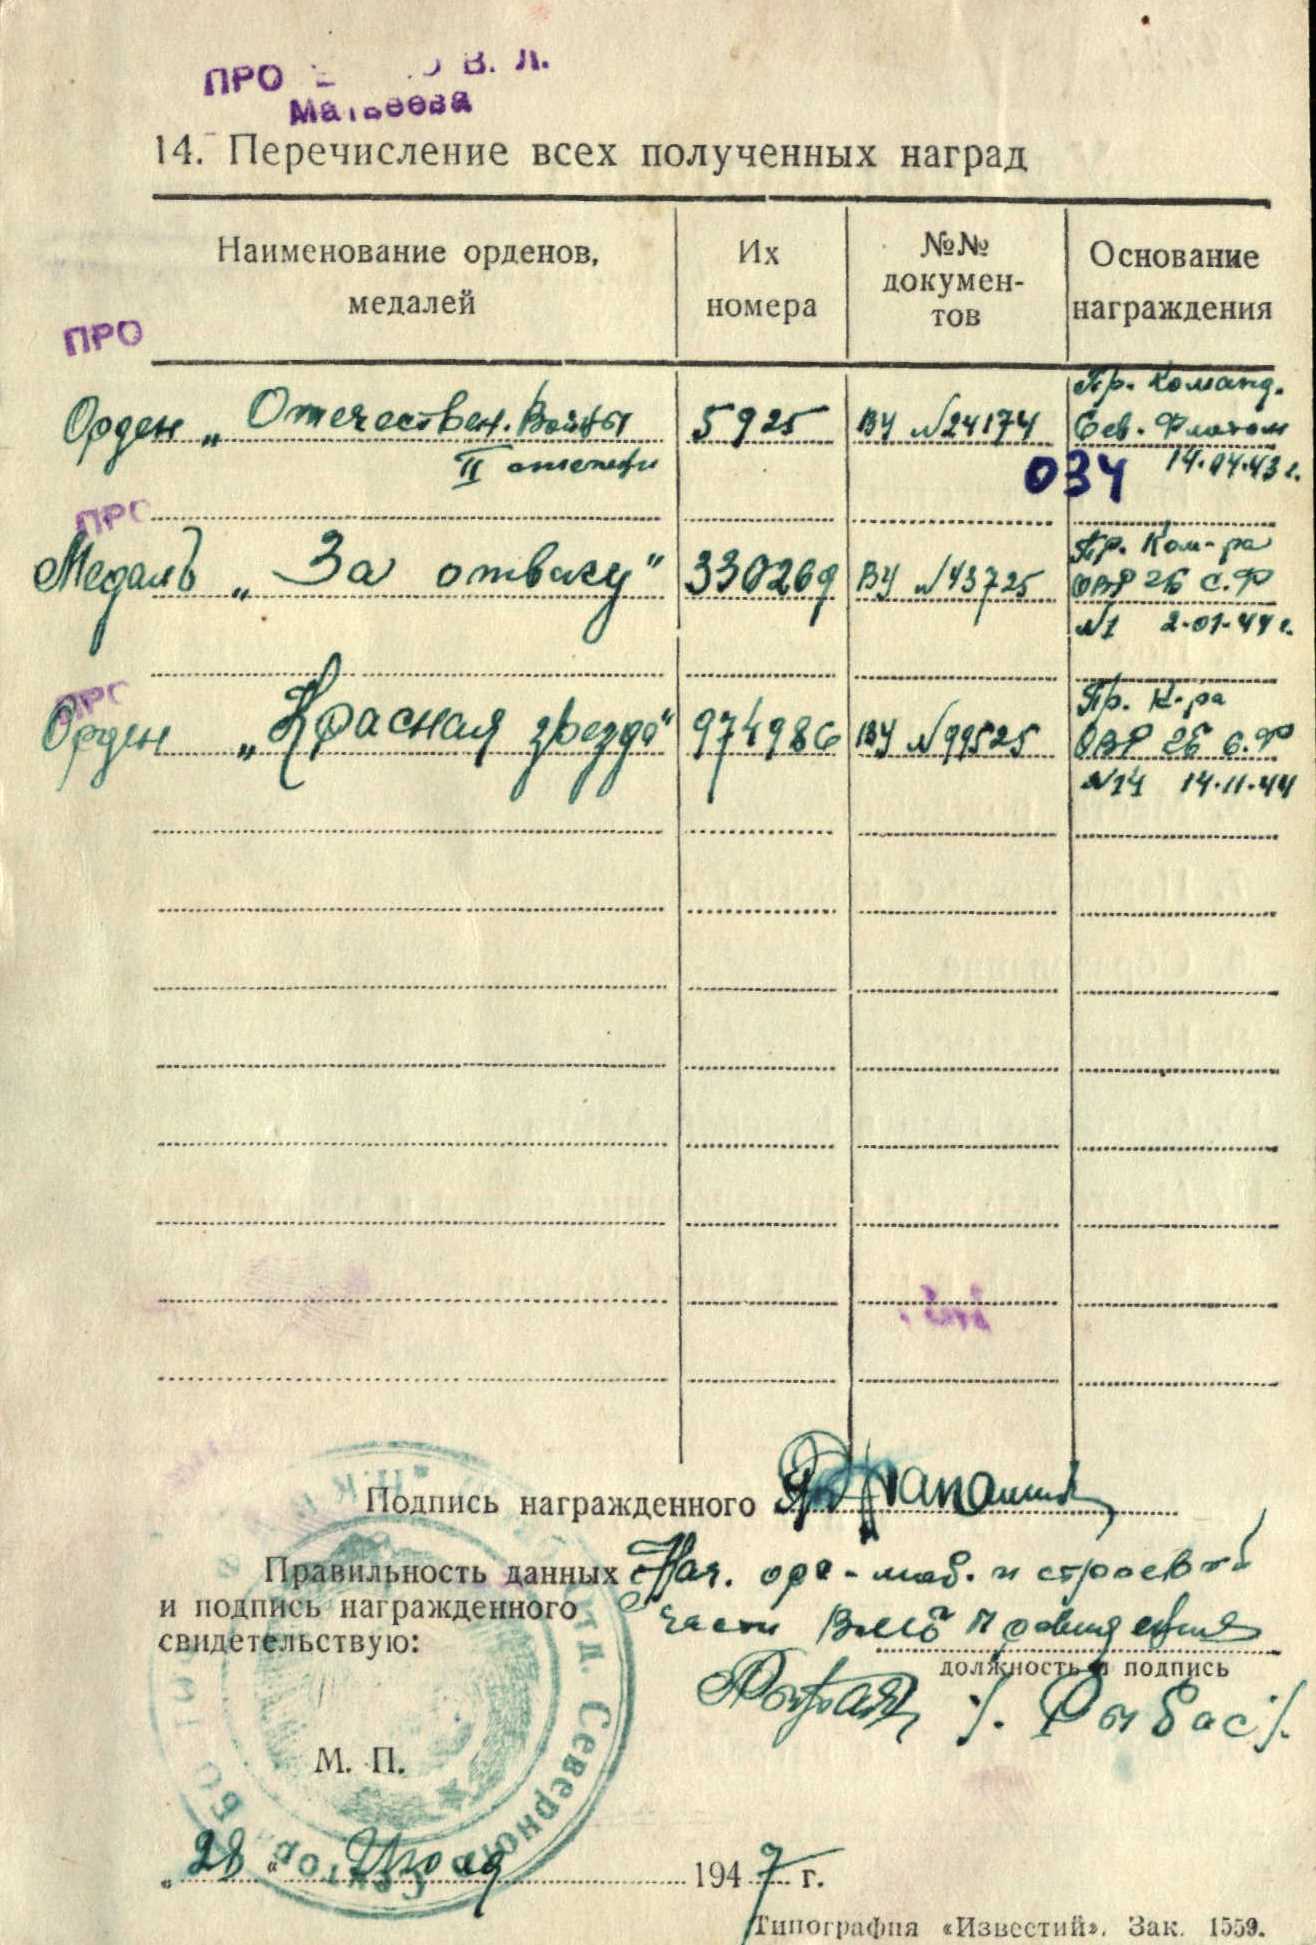 ПРО В. Л.
Матвеева
14. Перечисление всех полученных наград
Наименование орденов, медалей
Их номера
№№ докумен-тов
Основание награждения
ПРО
Орден „Отечествен. Войны 5925 ВУ №24174 Пр. Команд. Сев. Флотом
II степени 034 14.04.43 г.
ПРО
Медаль „За отвагу" 330269 ВУ №43725 Пр. Ком-ра ОВР ГБ С.Ф
№1 2-01-44 г.
ПРО
Орден „Красная звезда" 974986 ВУ №99525 Пр. К-ра ОВР ГБ С.Ф
№14 14.11.44
Подпись награжденного
Правильность данных Нач. орг-моб. и строевой
и подпись награжденного части
свидетельствую:
должность и подпись
/. Рыбас /.
М. П.
Северного
„28" Июля 1947 г.
Типография «Известий». Зак. 1559.